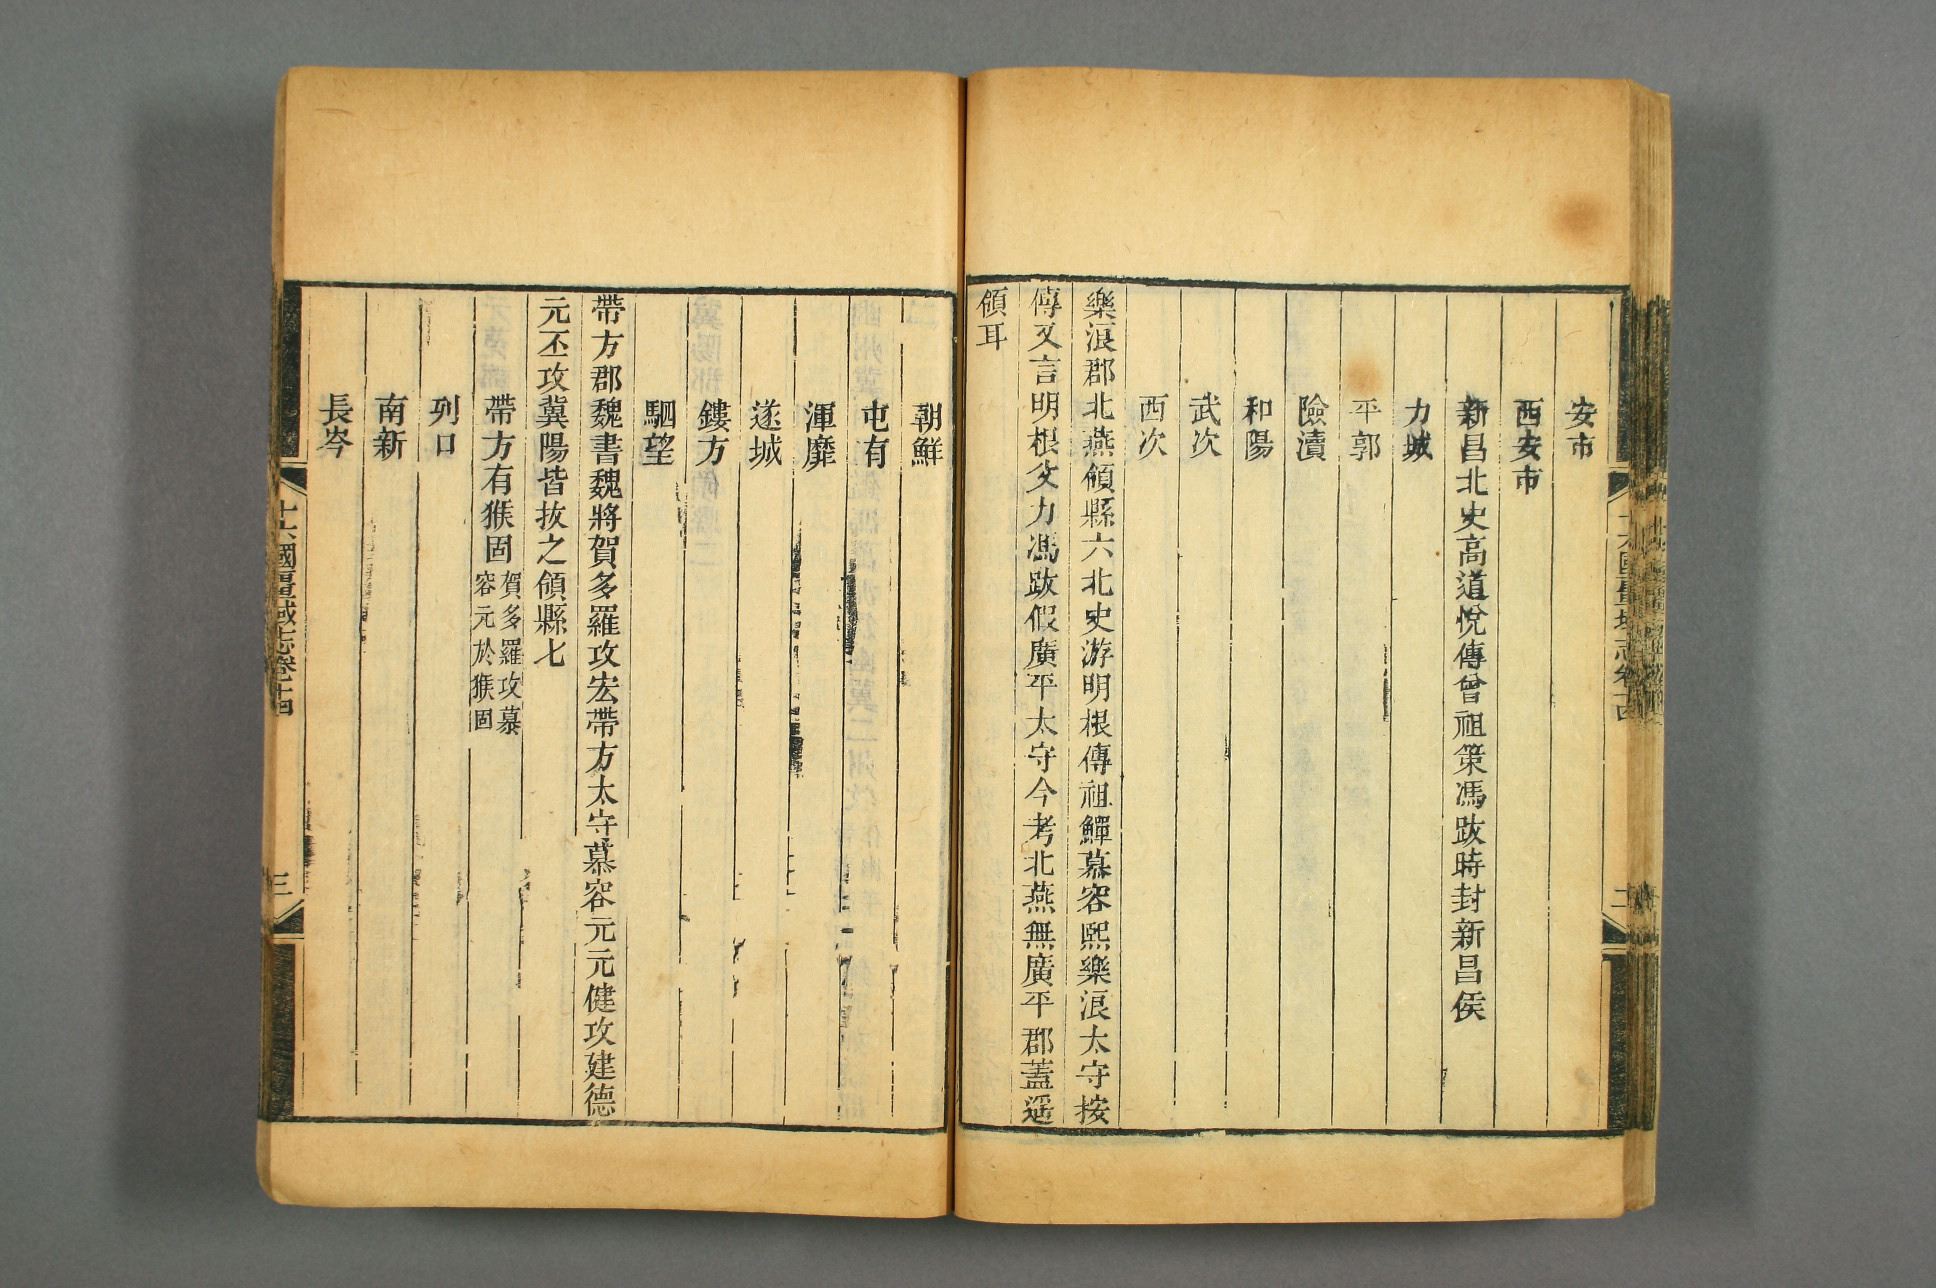 安市
西安市
新昌北史高道悅傳曾祖策馮跋時封新昌侯
力城
平郭
險瀆
和陽
武次
西次
樂浪郡北燕領縣六北史游明根傳祖鱓慕容熙樂浪太守按
傳又言明根父力馮跋假廣平太守今考北燕無廣平郡蓋遥
領耳
朝鮮
屯有
渾彌
遂城
鏤方
駟望
帶方郡魏書魏將賀多羅攻宏帶方太守慕容元元健攻建德
元丕攻冀陽皆拔之領縣七
帶方有猴固賀多羅攻慕
容元於猴固
列口
南新
長岑
十六國疆域志卷十四
三
十六國疆域志卷十四
二